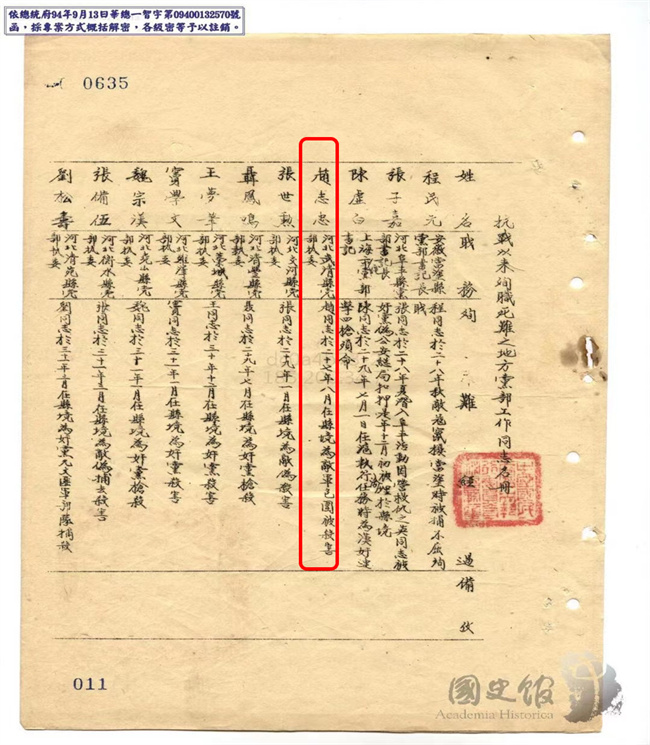 依總統府94年9月13日華總一智字第09400132570號
函，採專案方式概括解密，各級密等予以註銷。
0635
抗戰以來殉職死難之地方黨部工作同志名冊
姓名 職務 殉難經過 備攷
程民元 安徽當塗縣黨部書記長 程同志於二十八年秋敵寇竄擾當塗時被捕不屈殉職
張子嘉 河北阜平縣黨部書記長 張同志於二十八年 入阜平活動因營救 之吳同志被奸黨偽公安逮局扣押是年十二月初被埋於縣境
陳虛白 上海市黨部書記 陳同志於二十九年七月一日在滬執行任務時為漢奸連擊四槍殞命
趙志忠 河北武清縣黨部執委 趙同志於二十七年八月在縣境為敵軍包圍被殺害
張世勳 河北文河縣黨部執委 張同志於二十九年一月在縣境為敵偽殺害
聶鳳鳴 河北清豐縣黨部執委 聶同志於二十九年七月在縣境為奸黨槍殺
王夢筆 河北 城縣黨部執委 王同志於三十年十二月在縣境為奸黨殺害
竇學文 河北雞澤縣黨部執委 竇同志於三十一年一月在縣境為奸黨殺害
魏宗漢 河北堯山縣黨部執委 魏同志於三十一年一月在縣境為奸黨槍殺
張備伍 河北衡水縣黨部執委 張同志於三十一年三月在縣境為敵偽捕去殺害
劉松壽 河北清苑縣黨部執委 劉同志於三十二年一月在縣境為奸黨九文區軍部隊捕殺
011
國史館
Academia Historica